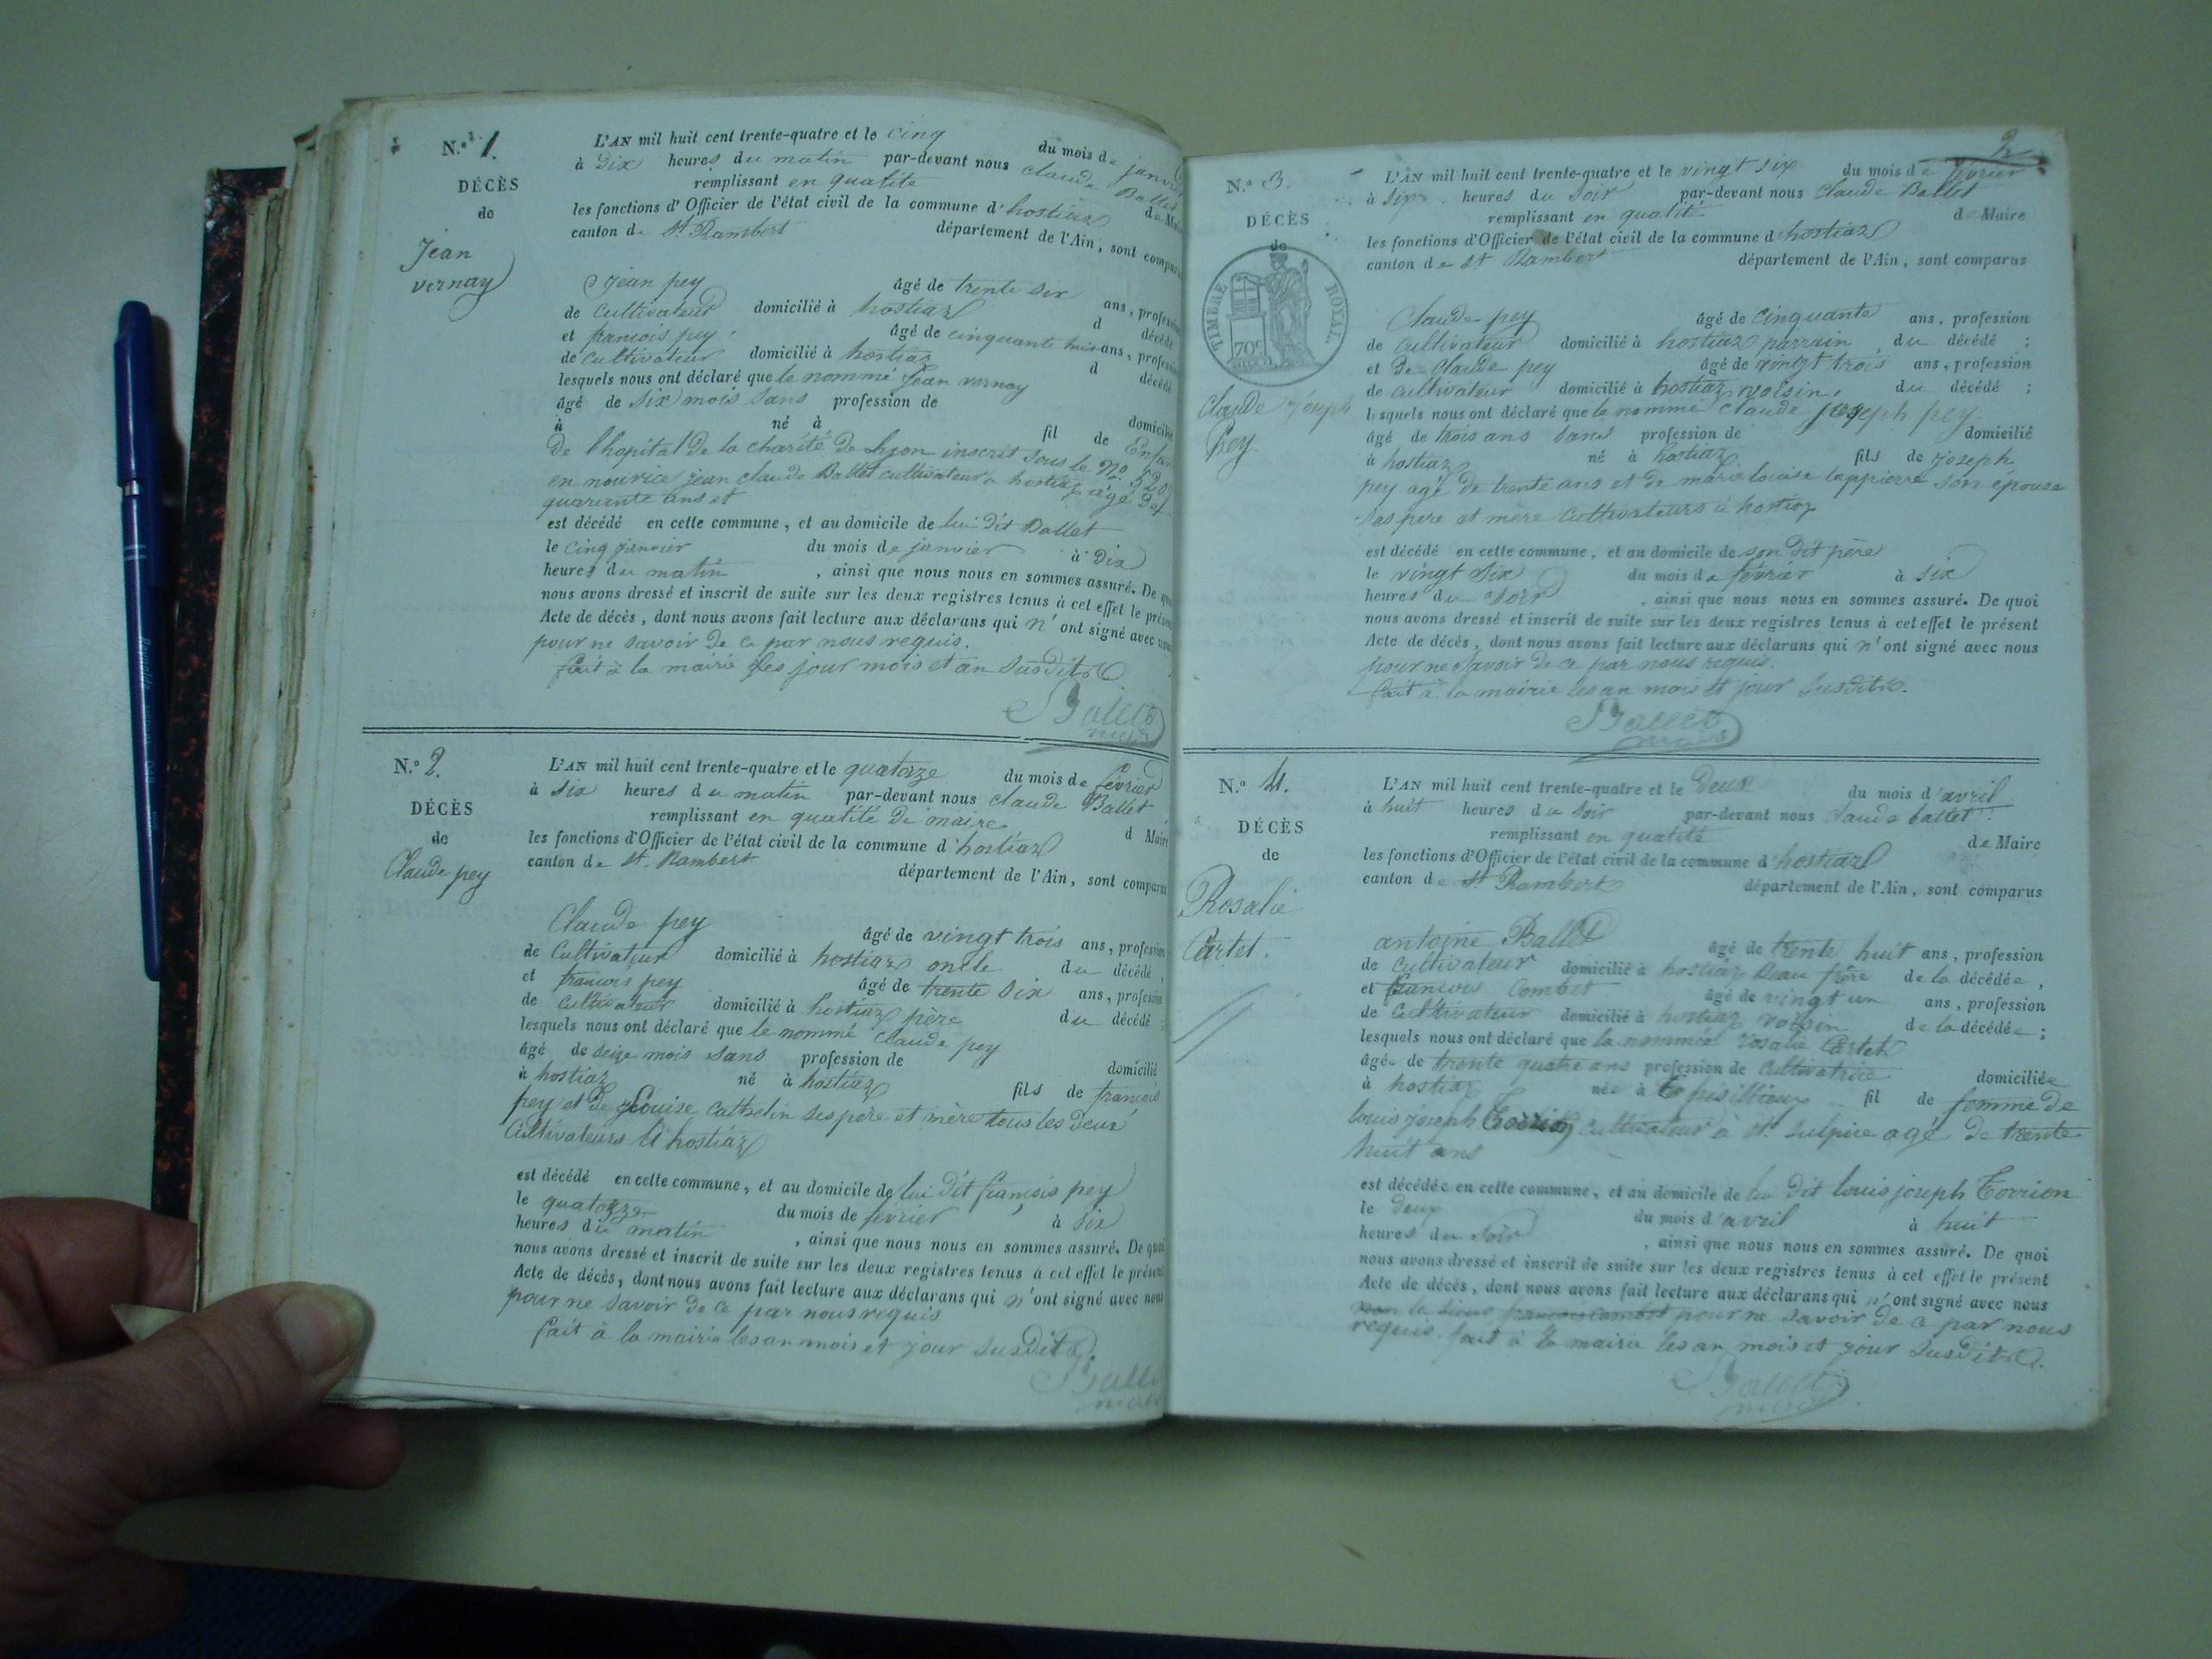 N.° 1.
DÉCÈS
de
Jean
vernay
L'AN mil huit cent trente-quatre et le cinq du mois de janvi
à Dix heures du matin par-devant nous claude Ballet
remplissant en qualité de Mai
les fonctions d'Officier de l'état civil de la commune d'hostiaz
canton de St Rambert département de l'Ain, sont compar
Jean pey âgé de trente six ans, profess
de cultivateur domicilié à hostiaz d décédé
et francois pey âgé de cinquante huit ans, profes
de cultivateur domicilié à hostiaz d décédé
lesquels nous ont déclaré que le nommé Jean vernay
âgé de six mois sans profession de domicilié
à né à fil de Enfan
de l'hopital de la charité de Lyon inscrit sous le No 520
en nourice jean claude Ballet cultivateur a hostiaz agé de
quarante ans et
est décédé en cette commune, et au domicile de lui dit Ballet
le cinq janvier du mois de janvier à Dix
heures du matin , ainsi que nous nous en sommes assuré. De qu
nous avons dressé et inscrit de suite sur les deux registres tenus à cet effet le prése
Acte de décès, dont nous avons fait lecture aux déclarans qui n'ont signé avec nou
pour ne savoir de ce par nous requis.
fait à la mairie les jour mois et an susdits
Ballet
maire
N.° 2.
DÉCÈS
de
Claude pey
L'AN mil huit cent trente-quatre et le quatorze du mois de février
à six heures du matin par-devant nous claude Ballet
remplissant en qualité de maire d Maire
les fonctions d'Officier de l'état civil de la commune d'hostiaz
canton de St. Rambert département de l'Ain, sont comparus
Claude pey âgé de vingt trois ans, profession
de Cultivateur domicilié à hostiaz oncle du décédé
et francois pey âgé de trente six ans, profession
de cultivateur domicilié à hostiaz père du décédé ;
lesquels nous ont déclaré que le nommé claude pey
âgé de seize mois sans profession de domicilié
à hostiaz né à hostiaz fils de francois
pey et de Louise Cathelin ses pere et mère tous les deux
Cultivateurs à hostiaz
est décédé en cette commune, et au domicile de lui dit francois pey
le quatorze du mois de fevrier à six
heures du matin , ainsi que nous nous en sommes assuré. De quoi
nous avons dressé et inscrit de suite sur les deux registres tenus à cet effet le présent
Acte de décès, dont nous avons fait lecture aux déclarans qui n'ont signé avec nous
pour ne savoir de ce par nous requis
fait à la mairie les an mois et jour susdits.
Ballet
maire
2
N.° 3.
DÉCÈS
de
TIMBRE ROYAL
70c
Claude joseph
Pey
L'AN mil huit cent trente-quatre et le vingt six du mois de fevrier
à six heures du soir par-devant nous Claude Ballet
remplissant en qualité de Maire
les fonctions d'Officier de l'état civil de la commune d'hostiaz
canton de St Rambert département de l'Ain, sont comparus
Claude pey âgé de Cinquante ans, profession
de cultivateur domicilié à hostiaz parrain du décédé ;
et de Claude pey âgé de vingt trois ans, profession
de cultivateur domicilié à hostiaz voisin, du décédé ;
lesquels nous ont déclaré que le nommé claude joseph pey
âgé de trois ans sans profession de domicilié
à hostiaz né à hostiaz fils de joseph
pey agé de trente ans et de marie louise lappierre son épouse
ses pere et mère cultivateurs à hostiaz
est décédé en cette commune, et au domicile de son dit père
le vingt six du mois de février à six
heures du soir , ainsi que nous nous en sommes assuré. De quoi
nous avons dressé et inscrit de suite sur les deux registres tenus à cet effet le présent
Acte de décès, dont nous avons fait lecture aux déclarans qui n'ont signé avec nous
pour ne savoir de ce par nous requis.
fait à la mairie les an mois et jour susdits.
Ballet
maire
N.° 4.
DÉCÈS
de
Rosalie
Cartet.
L'AN mil huit cent trente-quatre et le Deux du mois d'avril
à huit heures du soir par-devant nous claude ballet
remplissant en qualité de Maire
les fonctions d'Officier de l'état civil de la commune d'hostiaz
canton de St Rambert département de l'Ain, sont comparus
antoine Ballet âgé de trente huit ans, profession
de cultivateur domicilié à hostiaz beau frère de la décédée,
et francois Combet âgé de vingt un ans, profession
de Cultivateur domicilié à hostiaz voisin de la décédée ;
lesquels nous ont déclaré que la nommée rosalie Cartet
âgée de trente quatre ans profession de cultivatrice domiciliée
à hostiaz née à fil de femme de
louis joseph cultivateur à St. Sulpice agé de trente
huit ans
est décédée en cette commune, et au domicile de lui dit louis joseph Torrion
le deux du mois d'avril à huit
heures du soir , ainsi que nous nous en sommes assuré. De quoi
nous avons dressé et inscrit de suite sur les deux registres tenus à cet effet le présent
Acte de décès, dont nous avons fait lecture aux déclarans qui n'ont signé avec nous
pour ne savoir de ce par nous
requis. fait à la mairie les an mois et jour susdits.
Ballet
maire